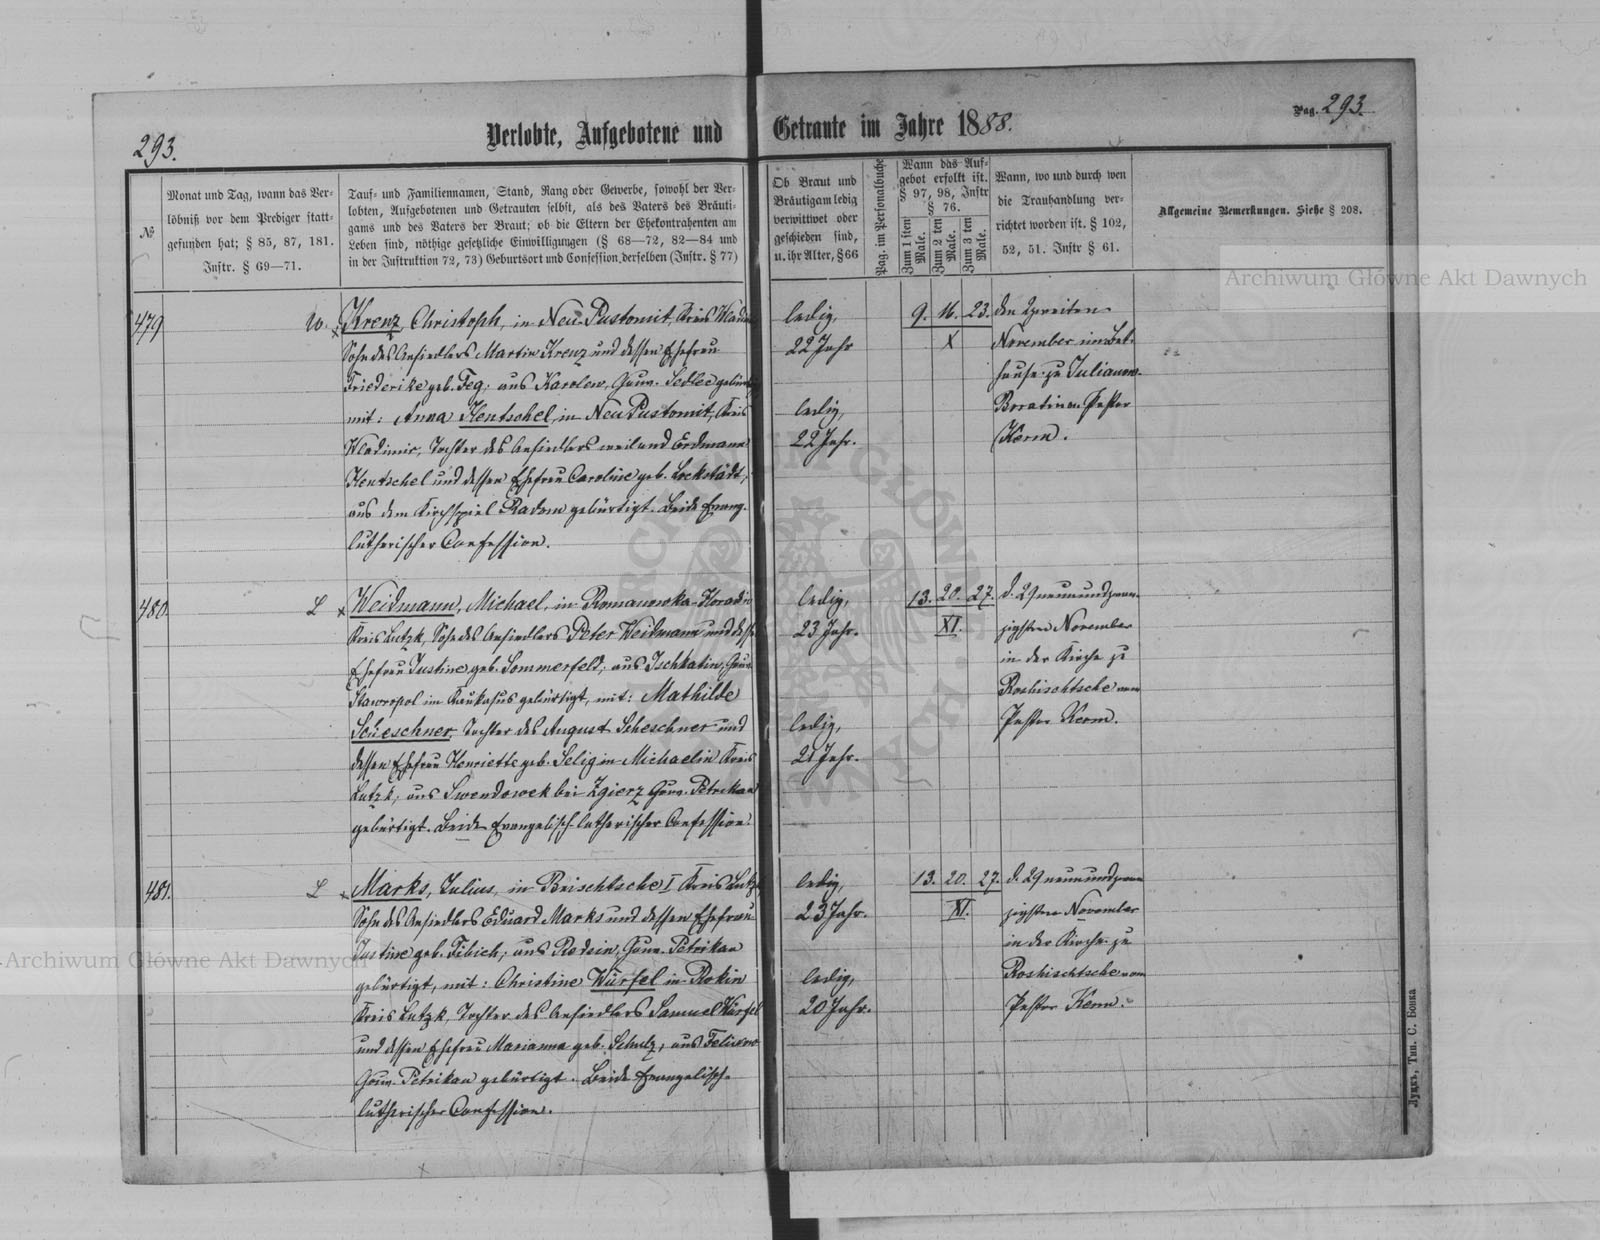 293.
Verlobte, Aufgebotene und Getraute im Jahre 1888.
Pag. 293.
№
Monat und Tag, wann das Ver-
löbniß vor dem Prediger statt-
gefunden hat; § 85, 87, 181.
Instr. § 69—71.
Tauf- und Familiennamen, Stand, Rang oder Gewerbe, sowohl der Ver-
lobten, Aufgebotenen und Getrauten selbst, als des Vaters des Bräuti-
gams und des Vaters der Braut; ob die Eltern der Ehekontrahenten am
Leben sind, nöthige gesetzliche Einwilligungen (§ 68—72, 82—84 und
in der Instruktion 72, 73) Geburtsort und Confession derselben (Instr. § 77)
Ob Braut und
Bräutigam ledig
verwittwet oder
geschieden sind,
u. ihr Alter, § 66
Pag. im Personalbuche
Wann das Auf-
gebot erfolgt ist.
§ 97, 98, Instr
§ 76.
Zum 1 sten Male.
Zum 2 ten Male.
Zum 3 ten Male.
Wann, wo und durch wen
die Trauhandlung ver-
richtet worden ist. § 102,
52, 51. Instr § 61.
Allgemeine Bemerkungen. Siehe § 208.
Archiwum Główne Akt Dawnych
479
W.
Krenz, Christoph, in Neu-Pustomit, Kreis Wladimir
Sohn des Ansiedlers Martin Krenz und dessen Ehefrau
Friederike geb. Feg, aus Karolew, Gouv. Sedlec gebürtig
mit: Anna Hentschel, in Neu Pustomit, Kreis
Wladimir, Tochter des Ansiedlers weiland Erdmann
Hentschel und dessen Ehefrau Caroline geb. Lockstädt,
aus dem Kirchspiel Radom gebürtigt. Beide Evang.
lutherischer Confession.
ledig,
22 Jahr
ledig,
22 Jahr.
9. 16. 23.
X
den Zweiten
November im Bet-
hause zu Julianow-
Boratin v. Pastor
Kerm.
480.
L
Weidmann, Michael, in Romanowka-
Kreis Lutzk, Sohn des Ansiedlers Peter Weidmann und dess.
Ehefrau Justine geb. Sommerfeld, aus Ischkatin, Gouv.
Stawropol im Kaukasus gebürtigt, mit: Mathilde
Scheschner, Tochter des August Scheschner und
dessen Ehefrau Henriette geb. Selig in Michaelin Kreis
Lutzk, aus Swendowek bei Zgierz Gouv. Petrikau
gebürtigt. Beide Evangelisch-lutherischer Confession.
ledig,
23 Jahr.
ledig,
21 Jahr.
13. 20. 27.
XI.
d. 29 neunundzwan-
zigsten November
in der Kirche zu
Roshischtsche vom
Pastor Kerm.
481.
L
Marks, Julius, in Brischtsche I Kreis Lutzk
Sohn des Ansiedlers Eduard Marks und dessen Ehefrau
Justine geb. Fibich, aus Gouv. Petrikau
gebürtigt, mit: Christine Würfel in Rokin
Kreis Lutzk, Tochter des Ansiedlers Samuel Würfel
und dessen Ehefrau Marianna geb. Schulz, aus Felixow
Gouv. Petrikau gebürtigt. Beide Evangelisch-
lutherischer Confession.
ledig,
23 Jahr.
ledig,
20 Jahr.
13. 20. 27.
XI.
d. 29 neunundzwan
zigsten November
in der Kirche zu
Roshischtsche vom
Pastor Kerm.
Archiwum Główne Akt Dawnych
Луцкъ, Тип. С. Бонка